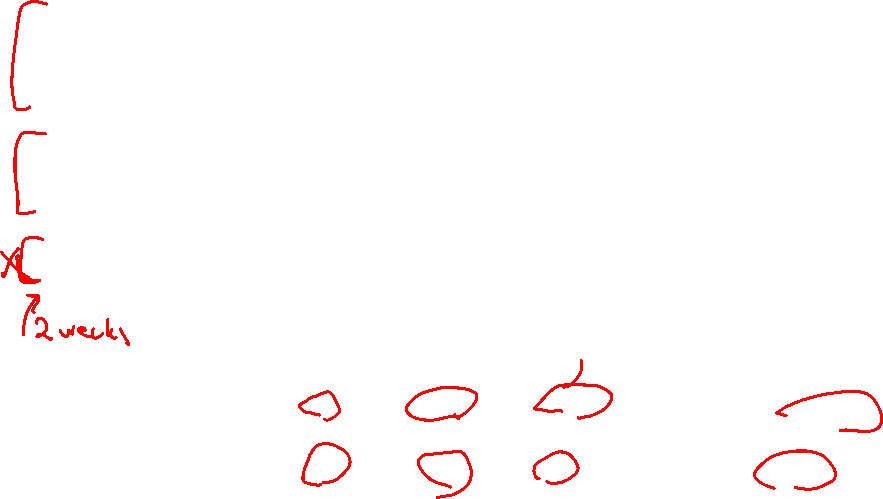 2 weeks